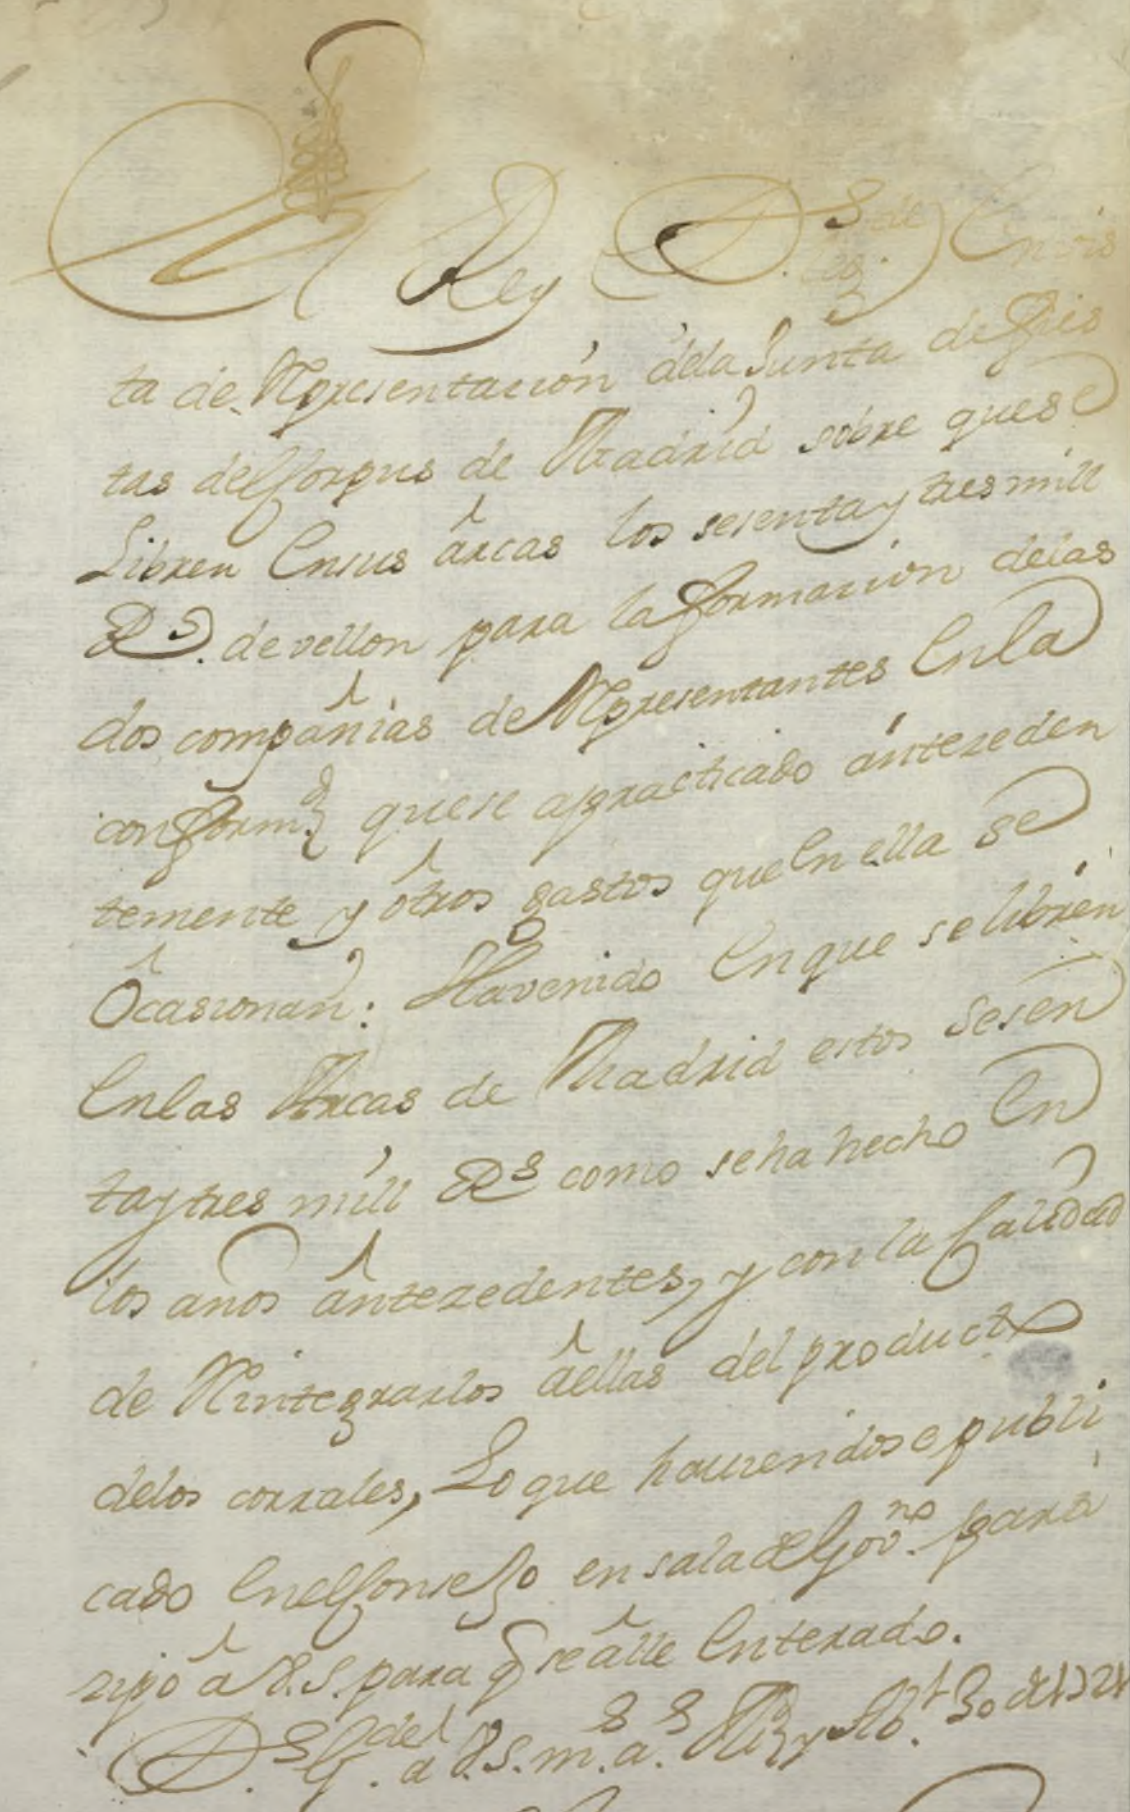 El Rey Ds. gde. en vis
ta de Representazion de la Junta de fies
tas del Corpus de Madrid sobre que se
Libren en sus arcas los sesenta y tres mill
Rs. de vellon para la formazion de las
dos compañias de Representantes en la
conformd. que se a practicado anteceden
temente y otros gastos que en ella se
Ocasionan: Ha venido en que se libren
en las Arcas de Madrid estos sesen
ta y tres mill Rs como se ha hecho en
los años antezedentes, y con la Calidad
de Reintegrarlos a ellas del producto
de los corrales, Lo que haviendose publi
cado en el Consejo en sala de Govno. parti
zipo a V.S. para q se alle enterado.
Ds. Gde. a V.S. ms. as. Md y Ab.l 30 de 1724